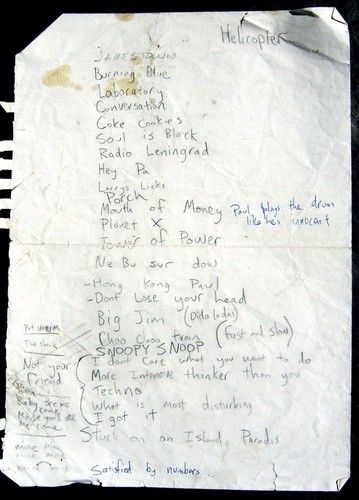 Helicopter
JAMESTOWN
Burning Blue
Laboratory
Conversation
Coke Cookies
Soul is Black
Radio Leningrad
Hey Pa
Larrys Licks
Porch
Mouth of Money
Paul plays the drums
like hes innocent
Planet X
Tower of Power
Ne Bu sur dow
-Hong Kong Paul
-Dont Lose your head
Big Jim (Dida ladas)
Choo Choo train (Fast and Slow)
SNOOPY SNOOP
I dont care what you want to do
More Intensive thinker than you
Techno
What is most disturbing
I got it
Stuck on an Island, Paradis
Satisfied by numbers
The shack
Not your
Friend
Baby see me
come
me come
mine mine
mine mine